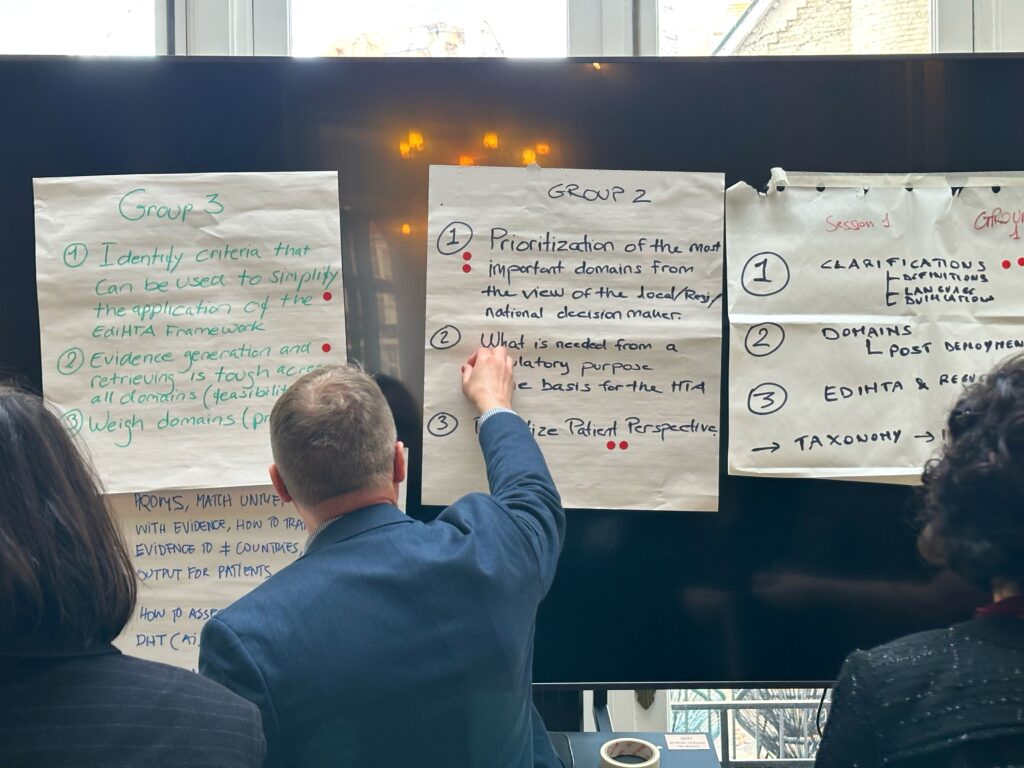 Group 3
① Identify criteria that
can be used to simplify
the application of the
EdiHTA Framework
② Evidence generation and
retrieving is tough
all domains (feasibility
③ Weigh domains
PROMS, MATCH
WITH EVIDENCE, HOW TO
EVIDENCE TO ≠ COUNTRIES,
OUTPUT FOR PATIENTS
HOW TO
DHT (Ai,
GROUP 2
① Prioritization of the most
important domains from
the view of the local/Regi/
national decision maker.
② What is needed from a
purpose
basis for the HTA
③ Patient Perspective
Session 1
GROUP
1
① CLARIFICATIONS
DEFINITIONS
LANGUAGE
② DOMAINS
POST DEPLOYMEN
③ EDIHTA &
→ TAXONOMY →